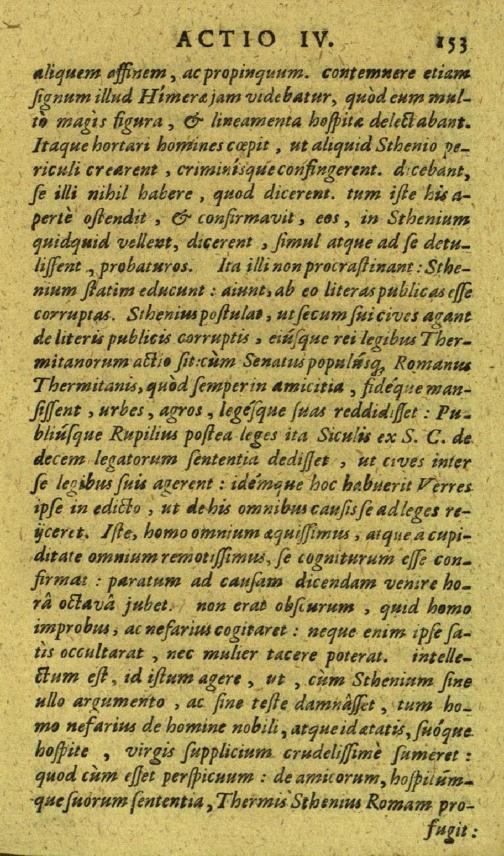 ACTIO IV. 153
aliquem affinem, ac propinquum. contemnere etiam
ſignum illud Himeræ jam videbatur, quòd eum mul-
tò magis figura, & lineamenta hoſpitæ delectabant.
Itaque hortari homines cœpit, ut aliquid Sthenio pe-
riculi crearent, criminíſque confingerent. dicebant,
ſe illi nihil habere, quod dicerent. tum iſte his a-
pertè oſtendit, & confirmavit, eos, in Sthenium
quidquid vellent, dicerent, ſimul atque ad ſe detu-
liſſent, probaturos. Ita illi non procraſtinant: Sthe-
nium ſtatim educunt: aiunt, ab eo literas publicas eſſe
corruptas. Sthenius poſtulat, ut ſecum ſui cives agant
de literis publicis corruptis, eiúſque rei legibus Ther-
mitanorum actio ſit: cùm Senatus populúsq́, Romanus
Thermitanis, quòd ſemper in amicitia, fidéque man-
ſiſſent, urbes, agros, legéſque ſuas reddidiſſet: Pu-
bliúſque Rupilius poſtea leges ita Siculis ex S. C. de
decem legatorum ſententia dediſſet, ut cives inter
ſe legibus ſuis agerent: idémque hoc habuerit Verres
ipſe in edicto, ut de his omnibus cauſis ſe ad leges re-
ijceret. Iſte, homo omnium æquiſſimus, atque a cupi-
ditate omnium remotiſſimus, ſe cogniturum eſſe con-
firmat: paratum ad cauſam dicendam venire ho-
râ octavâ jubet. non erat obſcurum, quid homo
improbus, ac nefarius cogitaret: neque enim ipſe ſa-
tìs occultarat, nec mulier tacere poterat. intelle-
ctum eſt, id iſtum agere, ut, cùm Sthenium ſine
ullo argumento, ac ſine teſte damnâſſet, tum ho-
mo nefarius de homine nobili, atque id ætatis, ſuóque
hoſpite, virgis ſupplicium crudeliſſimè ſumeret:
quod cùm eſſet perſpicuum: de amicorum, hoſpitúm-
que ſuorum ſententia, Thermis Sthenius Romam pro-
fugit: